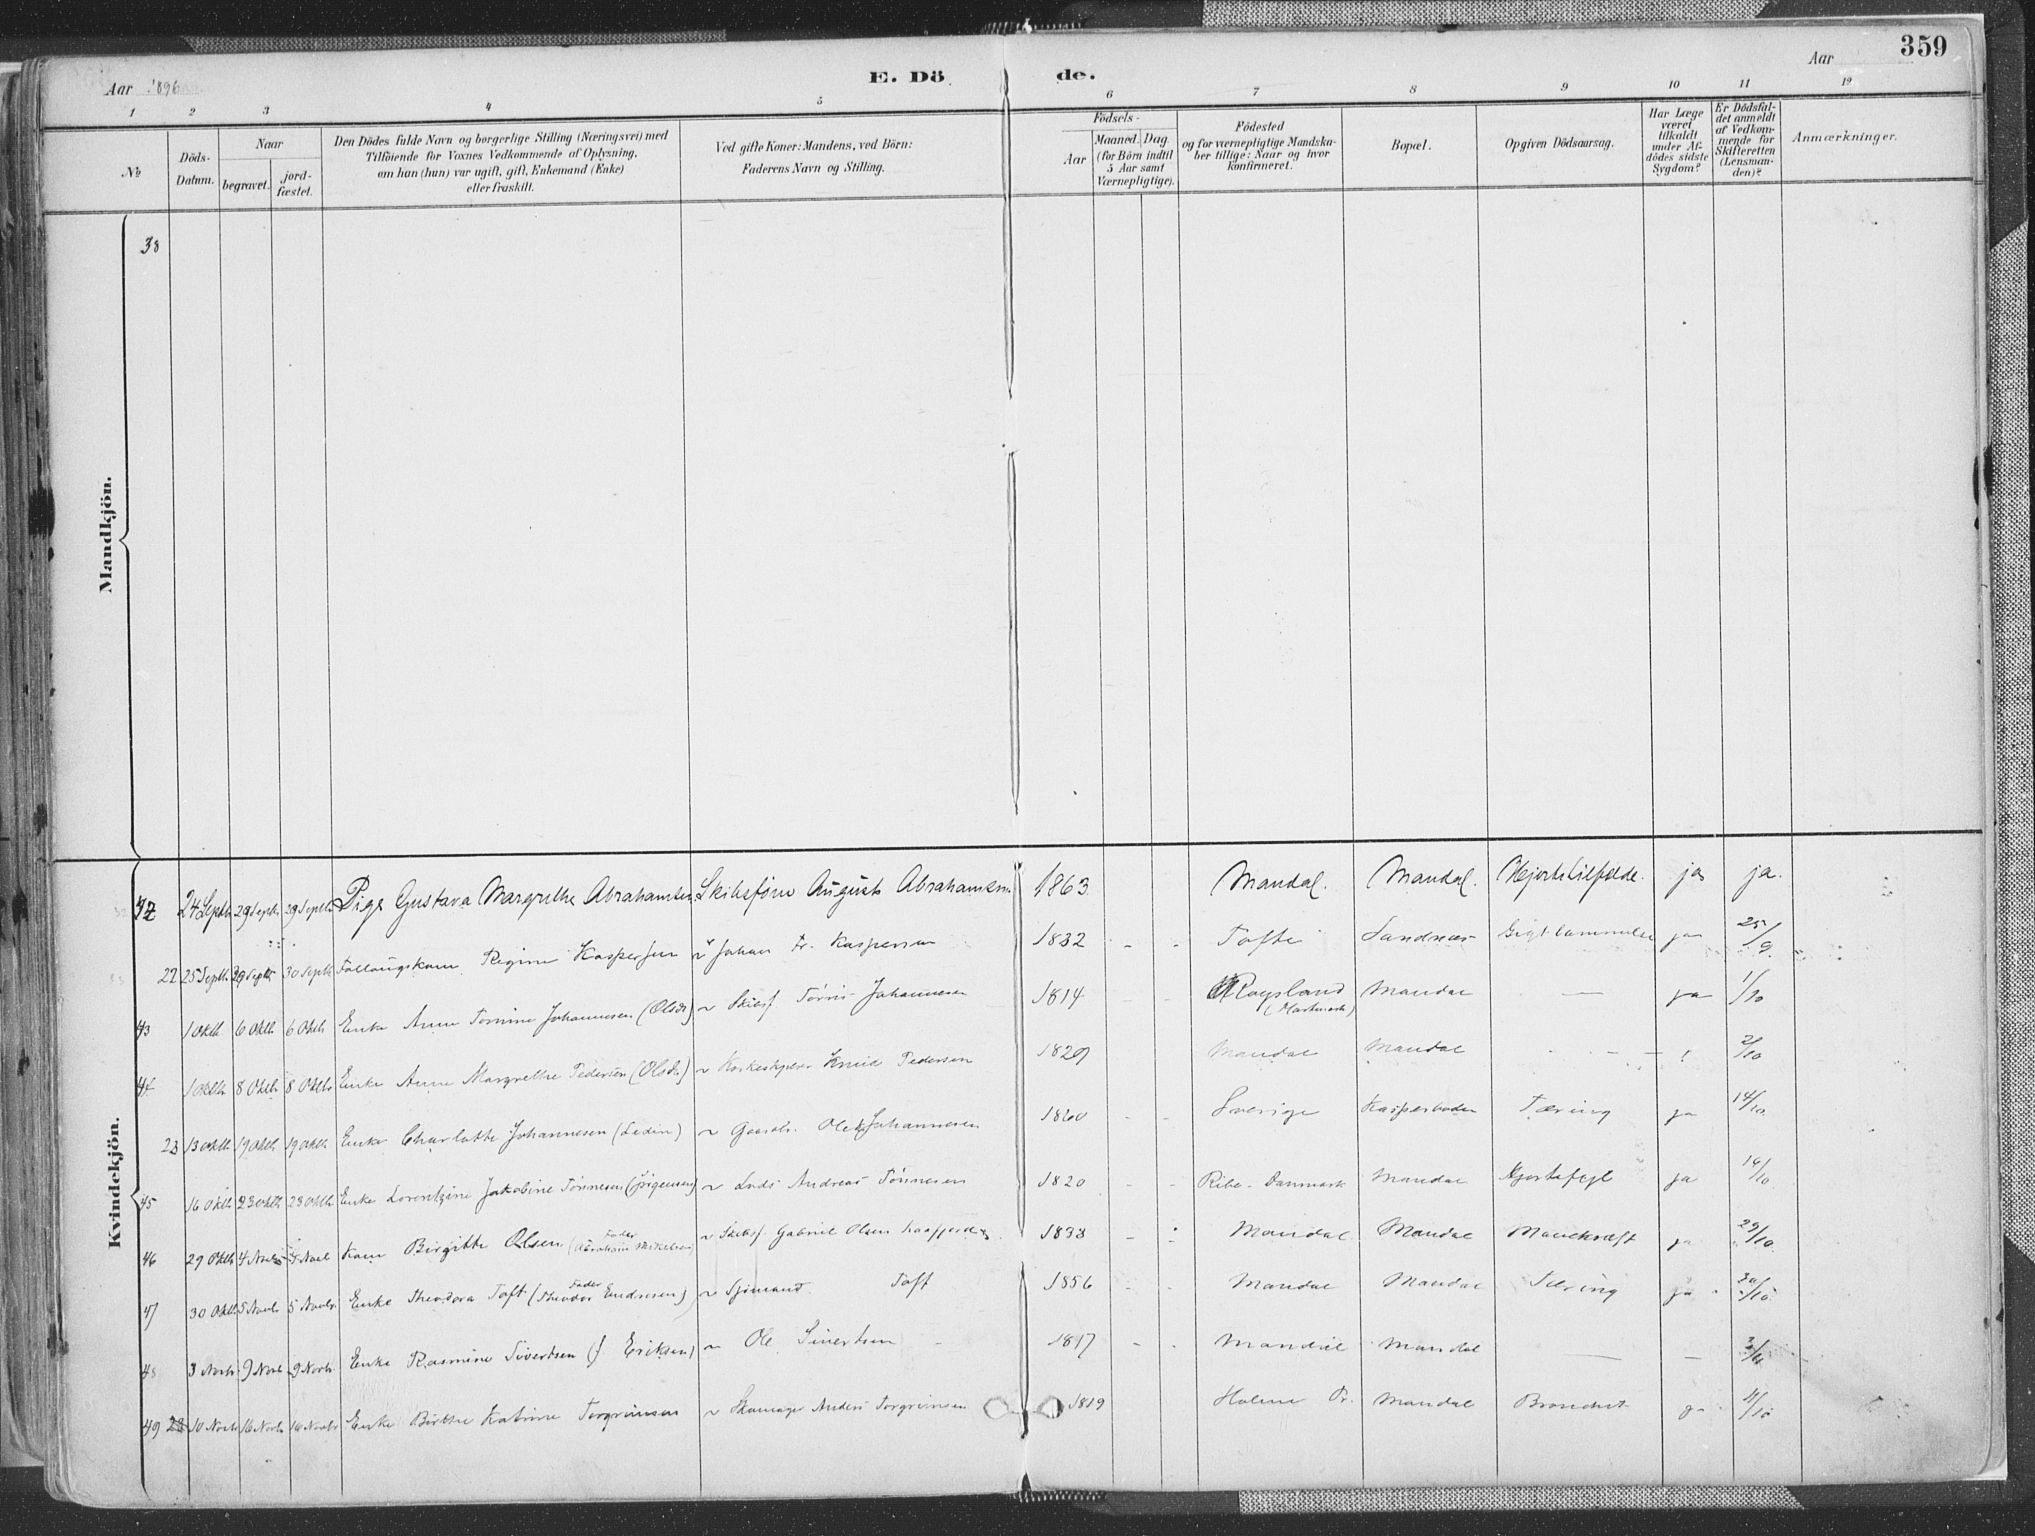 359
Aar 1896
E. Dö de.
Aar
1 2 3 4 5 6 7 8 9 10 11 12
No
Döds-Datum.
Naar
begravet.
jord-fæstet.
Den Dödes fulde Navn og borgerlige Stilling (Næringsvei) med
Tilföiende for Voxnes Vedkommende af Oplysning,
om han (hun) var ugift, gift, Enkemand (Enke)
eller fraskilt.
Ved gifte Koner: Mandens, ved Börn:
Faderens Navn og Stilling.
Födsels-
Aar
Maaned. Dag.
(for Börn indtil
5 Aar samt
Værnepligtige).
Födested
og for værnepligtige Mandska-
ber tillige: Naar og hvor
konfirmeret.
Bopæl.
Opgiven Dödsaarsag.
Har Læge
været
tilkaldt
under Af-
dödes sidste
Sygdom?
Er Dödsfal-
det anmeldt
af Vedkom-
mende for
Skifteretten
(Lensman-
den)?
Anmærkninger.
Mandkjön.
38
Kvindekjön.
42 24 Septb. 29 Septb. 29 Septb. Pige Gustava Margrethe Abrahamsen Skibsfører August Abrahamsen 1863 Mandal. Mandal. Hjertetilfælde. ja ja.
22 25 Septb. 29 Septb. 30 Septb. Regine Kaspersen " Johan Fr. Kaspersen 1832 - - Tofte Sandnæs ja 25/9
43 1 Oktb. 6 Oktb. 6 Oktb. Enke Anne Tomine Johannesen (Olsdr) ~ Skibsf. Tørris Johannesen 1814 - - Røysland (Hartmark) Mandal — ja 1/10
44 1 Oktb. 8 Oktb. 8 Oktb. Enke Anne Margrethe Pedersen (Olsdr.) ~ Knud Pedersen 1829 Mandal Mandal 2/10
23 13 Oktb. 19 Oktb. 19 Oktb. Enke Charlotte Johannesen (Ledin) ~ Gaardbr. Ole Johannesen 1860 - - Sverige Tæring ja 14/10
45 16 Oktb. 23 Oktb. 23 Oktb. Enke Lorentzine Jakobine Tönnesen (Jörgensen) ~ Lods Andreas Tönnesen 1820 - - Ribe - Danmark Mandal Hjertefejl ja 16/10
46 29 Oktb. 4 Novb. 4 Novb. Kone Birgitte Olsen (Fader Abraham Mikelsen) ~ Skibsf. Gabriel Olsen 1833 - Mandal Mandal Mavekræft ja 29/10
47 30 Oktb. 5 Novb. 5 Novbr. Enke Theodora Toft (Fader Theodor Endresen) ~ Sjömand Toft 1856 Mandal Mandal Tæring ja 30/10
48 3 Novb. 9 Novb. 9 Novb. Enke Rasmine Sivertsen (f. Eriksen) ~ Ole Sivertsen 1817 - Mandal Mandal — — 3/11
49 10 Novb. 16 Novb. 16 Novb. Enke Birthe Katrine Torgrimsen ~ Anders Torgrimsen 1819 Holme Pr. Mandal ja